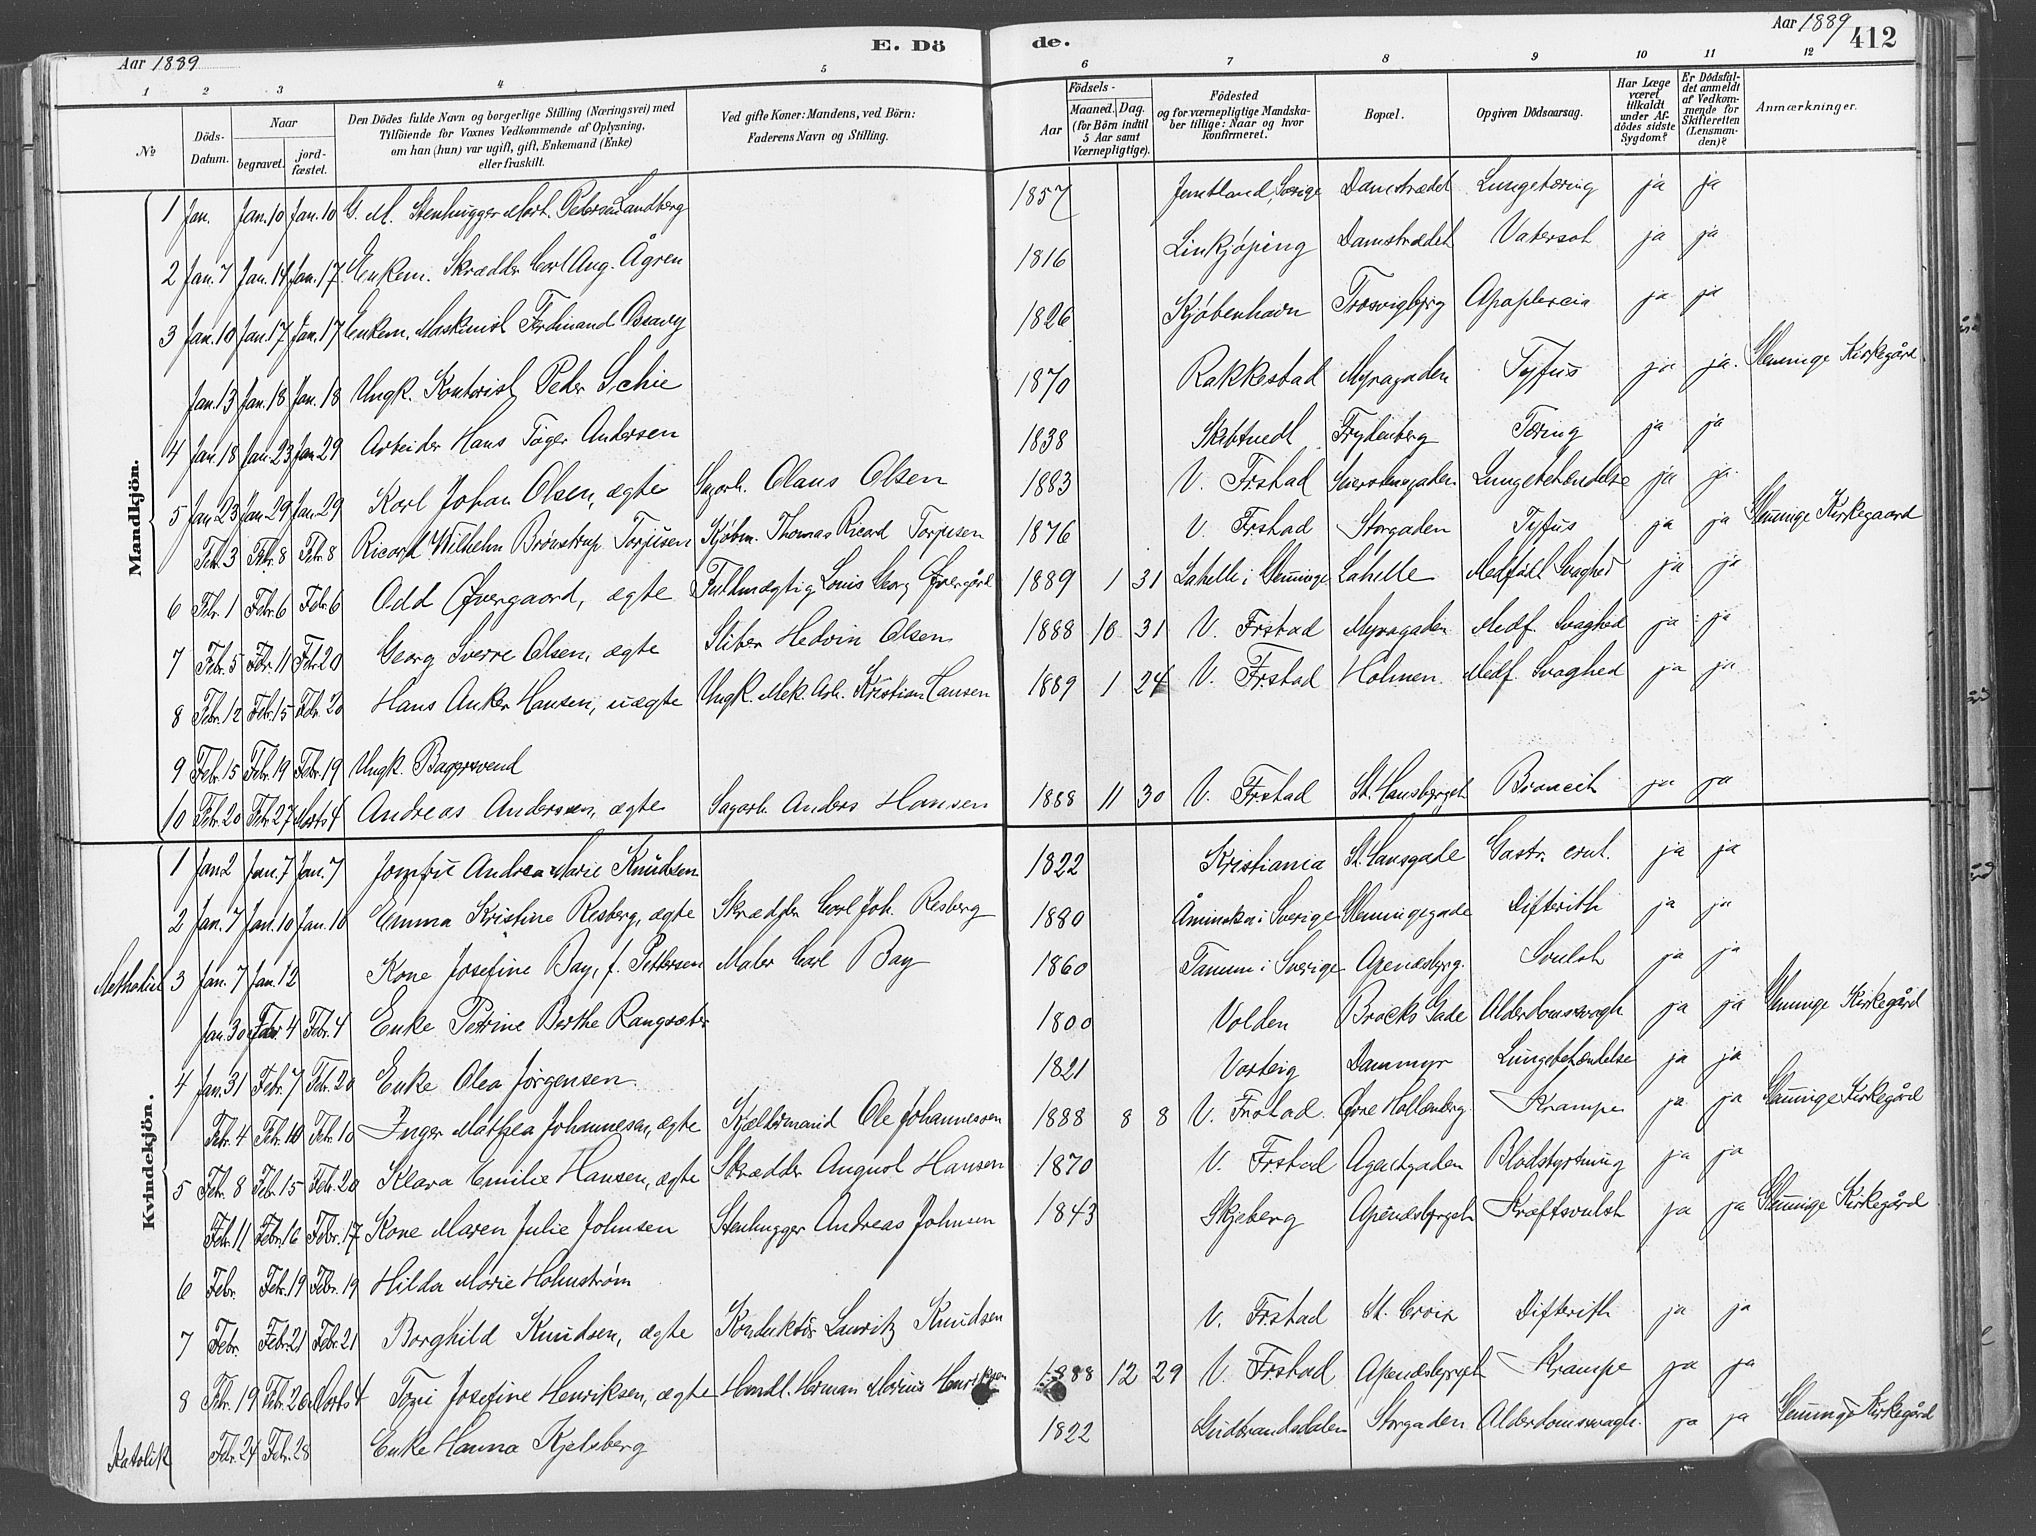 Aar 1889
E. Dö
de.
Aar 1889
412
1 2 3 4 5 6 7 8 9 10 11 12
№
Döds-Datum.
Naar
begravet.
jord-fæstet.
Den Dödes fulde Navn og borgerlige Stilling (Næringsvei) med
Tilföiende for Voxnes Vedkommende af Oplysning,
om han (hun) var ugift, gift, Enkemand (Enke)
eller fraskilt.
Ved gifte Koner: Mandens, ved Börn:
Faderens Navn og Stilling.
Födsels-
Aar
Maaned. Dag.
(for Börn indtil 5 Aar samt Værnepligtige).
Födested
og for værnepligtige Mandska-
ber tillige: Naar og hvor
konfirmeret.
Bopæl.
Opgiven Dödsaarsag.
Har Læge været tilkaldt under Af-dödes sidste Sygdom?
Er Dödsfal-det anmeldt af Vedkom-mende for Skifteretten (Lensman-den)?
Anmærkninger.
Mandkjön.
1 Jan. Jan. 10 Jan. 10 G. M. Stenhugger Mart. Petersen Landberg 1857 Jemtland, Sverige Damstrædet Lungetæring ja ja
2 Jan. 7 Jan. 14 Jan. 17 Enkem. Skrædder Carl Aug. Ågren 1816 Linkjøping Damstrædet Vatersot ja ja
3 Jan. 10 Jan. 17 Jan. 17 Enkem. Maskinist Ferdinand 1826 Kjøbenhavn Trosvigbjrg Apoplexia ja ja
Jan. 13 Jan. 18 Jan. 18 Ungk. Kontorist Peder Schie 1870 Rakkestad Myragaden Tyfus ja ja. Glemminge Kirkegård
4 Jan. 18 Jan. 23 Jan. 29 Arbeider Hans Tøger Andersen 1838 Skibtvedt Frydenberg Tæring ja ja
5 Jan. 23 Jan. 29 Jan. 29 Karl Johan Olsen, ægte Sagarb. Olaus Olsen 1883 V. Frstad Lungebetændelse ja ja
Febr. 3 Febr. 8 Febr. 8 Ricard Wilhelm Brønstrup Torjusen Kjøbm. Thomas Ricard Torjusen 1876 V. Frstad Storgaden Tyfus ja ja Glemminge Kirkegaard
6 Febr. 1 Febr. 6 Febr. 6 Odd Øvergaard, ægte Fuldmægtig Louis Georg Øvergård 1889 1 31 Lahelle i Glemminge Lahelle Medfødt Svaghed ja ja
7 Febr. 5 Febr. 11 Febr. 20 Georg Sverre Olsen, ægte Sliber Hedvin Olsen 1888 10 31 V. Frstad Myragaden Medf. Svaghed ja ja
8 Febr. 12 Febr. 15 Febr. 20 Hans Anker Hansen, uægte Ungk. Mek. Arb. Kristian Hansen 1889 1 24 V. Frstad Holmen Medf. Svaghed ja ja
9 Febr. 15 Febr. 19 Febr. 19 Ungk. Bagersvend
10 Febr. 20 Febr. 27 Marts 4 Andreas Anderssen, ægte Sagarb. Anders Hansen 1888 11 30 V. Frstad St. Hansbjerget Broncit ja ja
Kvindekjön.
1 Jan. 2 Jan. 7 Jan. 7 Jomfru Andrea Marie Knudsen 1822 Kristiania St. Hansgade Gastr. ja ja
2 Jan. 7 Jan. 10 Jan. 10 Emma Kristine Resberg, ægte Skrædder Carl Joh. Resberg 1880 Åminskn i Sverige Glemmingegade Difterith ja ja
Methodist 3 Jan. 7 Jan. 12 Kone Josefine Bay, f. Pettersen Maler Carl Bay 1860 Tanum i Sverige Apenæsbjrg. Svulst ja ja
Jan. 30 Febr. 4 Febr. 4 Enke Petrine Berthe Rangsæter 1800 Volden Brocks Gade Alderdomssvagh ja ja Glemminge Kirkegård
4 Jan. 31 Febr. 7 Febr. 20 Enke Olea Jørgensen 1821 Varteig Dammyr Lungebetændelse ja ja
Febr. 4 Febr. 10 Febr. 10 Inger Mathea Johannesen, ægte Kjeldermand Ole Johannessen 1888 8 8 V. Frstad. Øvre Hollenberg Krampe ja ja Glemminge Kirkegård
5 Febr. 8 Febr. 15 Febr. 20 Klara Emilie Hansen, ægte Skrædder August Hansen 1870 V. Frstad Agentgaden Blodstyrtning ja ja
Febr. 11 Febr. 16 Febr. 17 Kone Maren Julie Johnsen Stenhugger Andreas Johnsen 1843 Skjeberg Apenæsbjrget Kræftsvulst ja ja Glemminge Kirkegård
6 Febr. Febr. 19 Febr. 19 Hilda Marie Holmstrøm
7 Febr. Febr. 21 Febr. 21 Borghild Knudsen, ægte Konduktør Lauritz Knudsen V. Frstad St. Croix Difterith ja ja
8 Febr. 19 Febr. 26 Marts 4 Toni Josefine Henriksen, ægte Handl. Herman Marius Henriksen 1888 12 29 V. Frstad Apenæsbjrget Krampe ja ja
Katolik Febr. 24 Febr. 28 Enke Hanna Kjelsberg 1822 Gudbrandsdalen Storgaden Alderdomssvagh. ja ja Glemminge Kirkegård